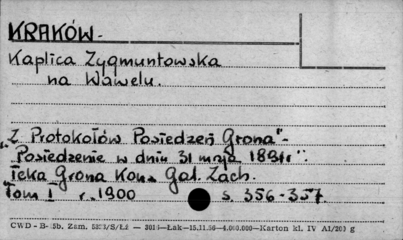 KRAKÓW-
Kaplica Zygmuntowska
na Wawelu.
"Z Protokołów Posiedzeń Grona"-
"Posiedzenie w dniu 31 maja 1891r".
Teka Grona Kons. Gal. Zach.
Tom I r. 1900 s. 356-357.
CWD - B- 5b. Zam. /S/Łź — Łak—15.11.56—4.000.000—Karton kl. IV A1/200 g